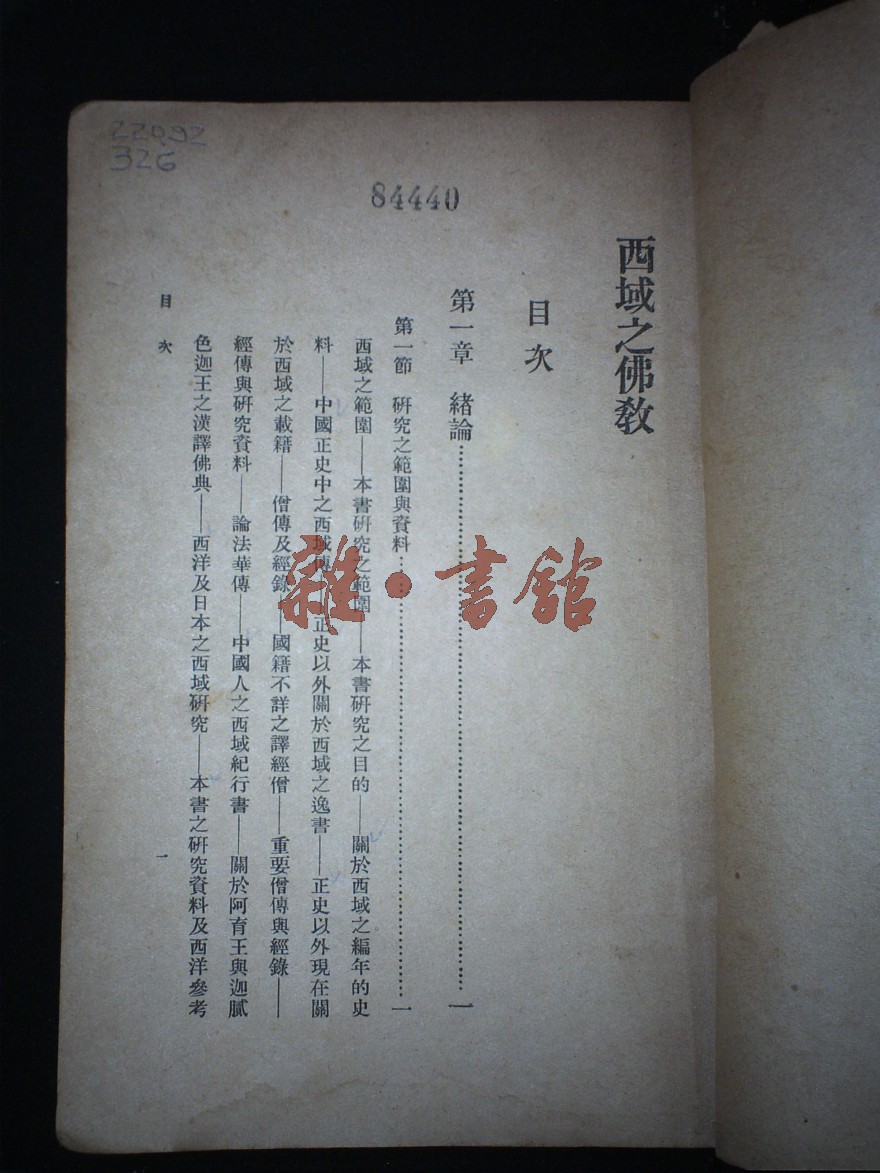 220.92
326
84440
西域之佛教
目次
第一章　緒論……一
第一節　硏究之範圍與資料……一
西域之範圍——本書硏究之範圍——本書硏究之目的——關於西域之編年的史
料——中國正史中之西域傳——正史以外關於西域之逸書——正史以外現在關
於西域之載籍——僧傳及經錄——國籍不詳之譯經僧——重要僧傳與經錄——
經傳與硏究資料——論法華傳——中國人之西域紀行書——關於阿育王與迦膩
色迦王之漢譯佛典——西洋及日本之西域硏究——本書之硏究資料及西洋參考
目次
一
雜·書館